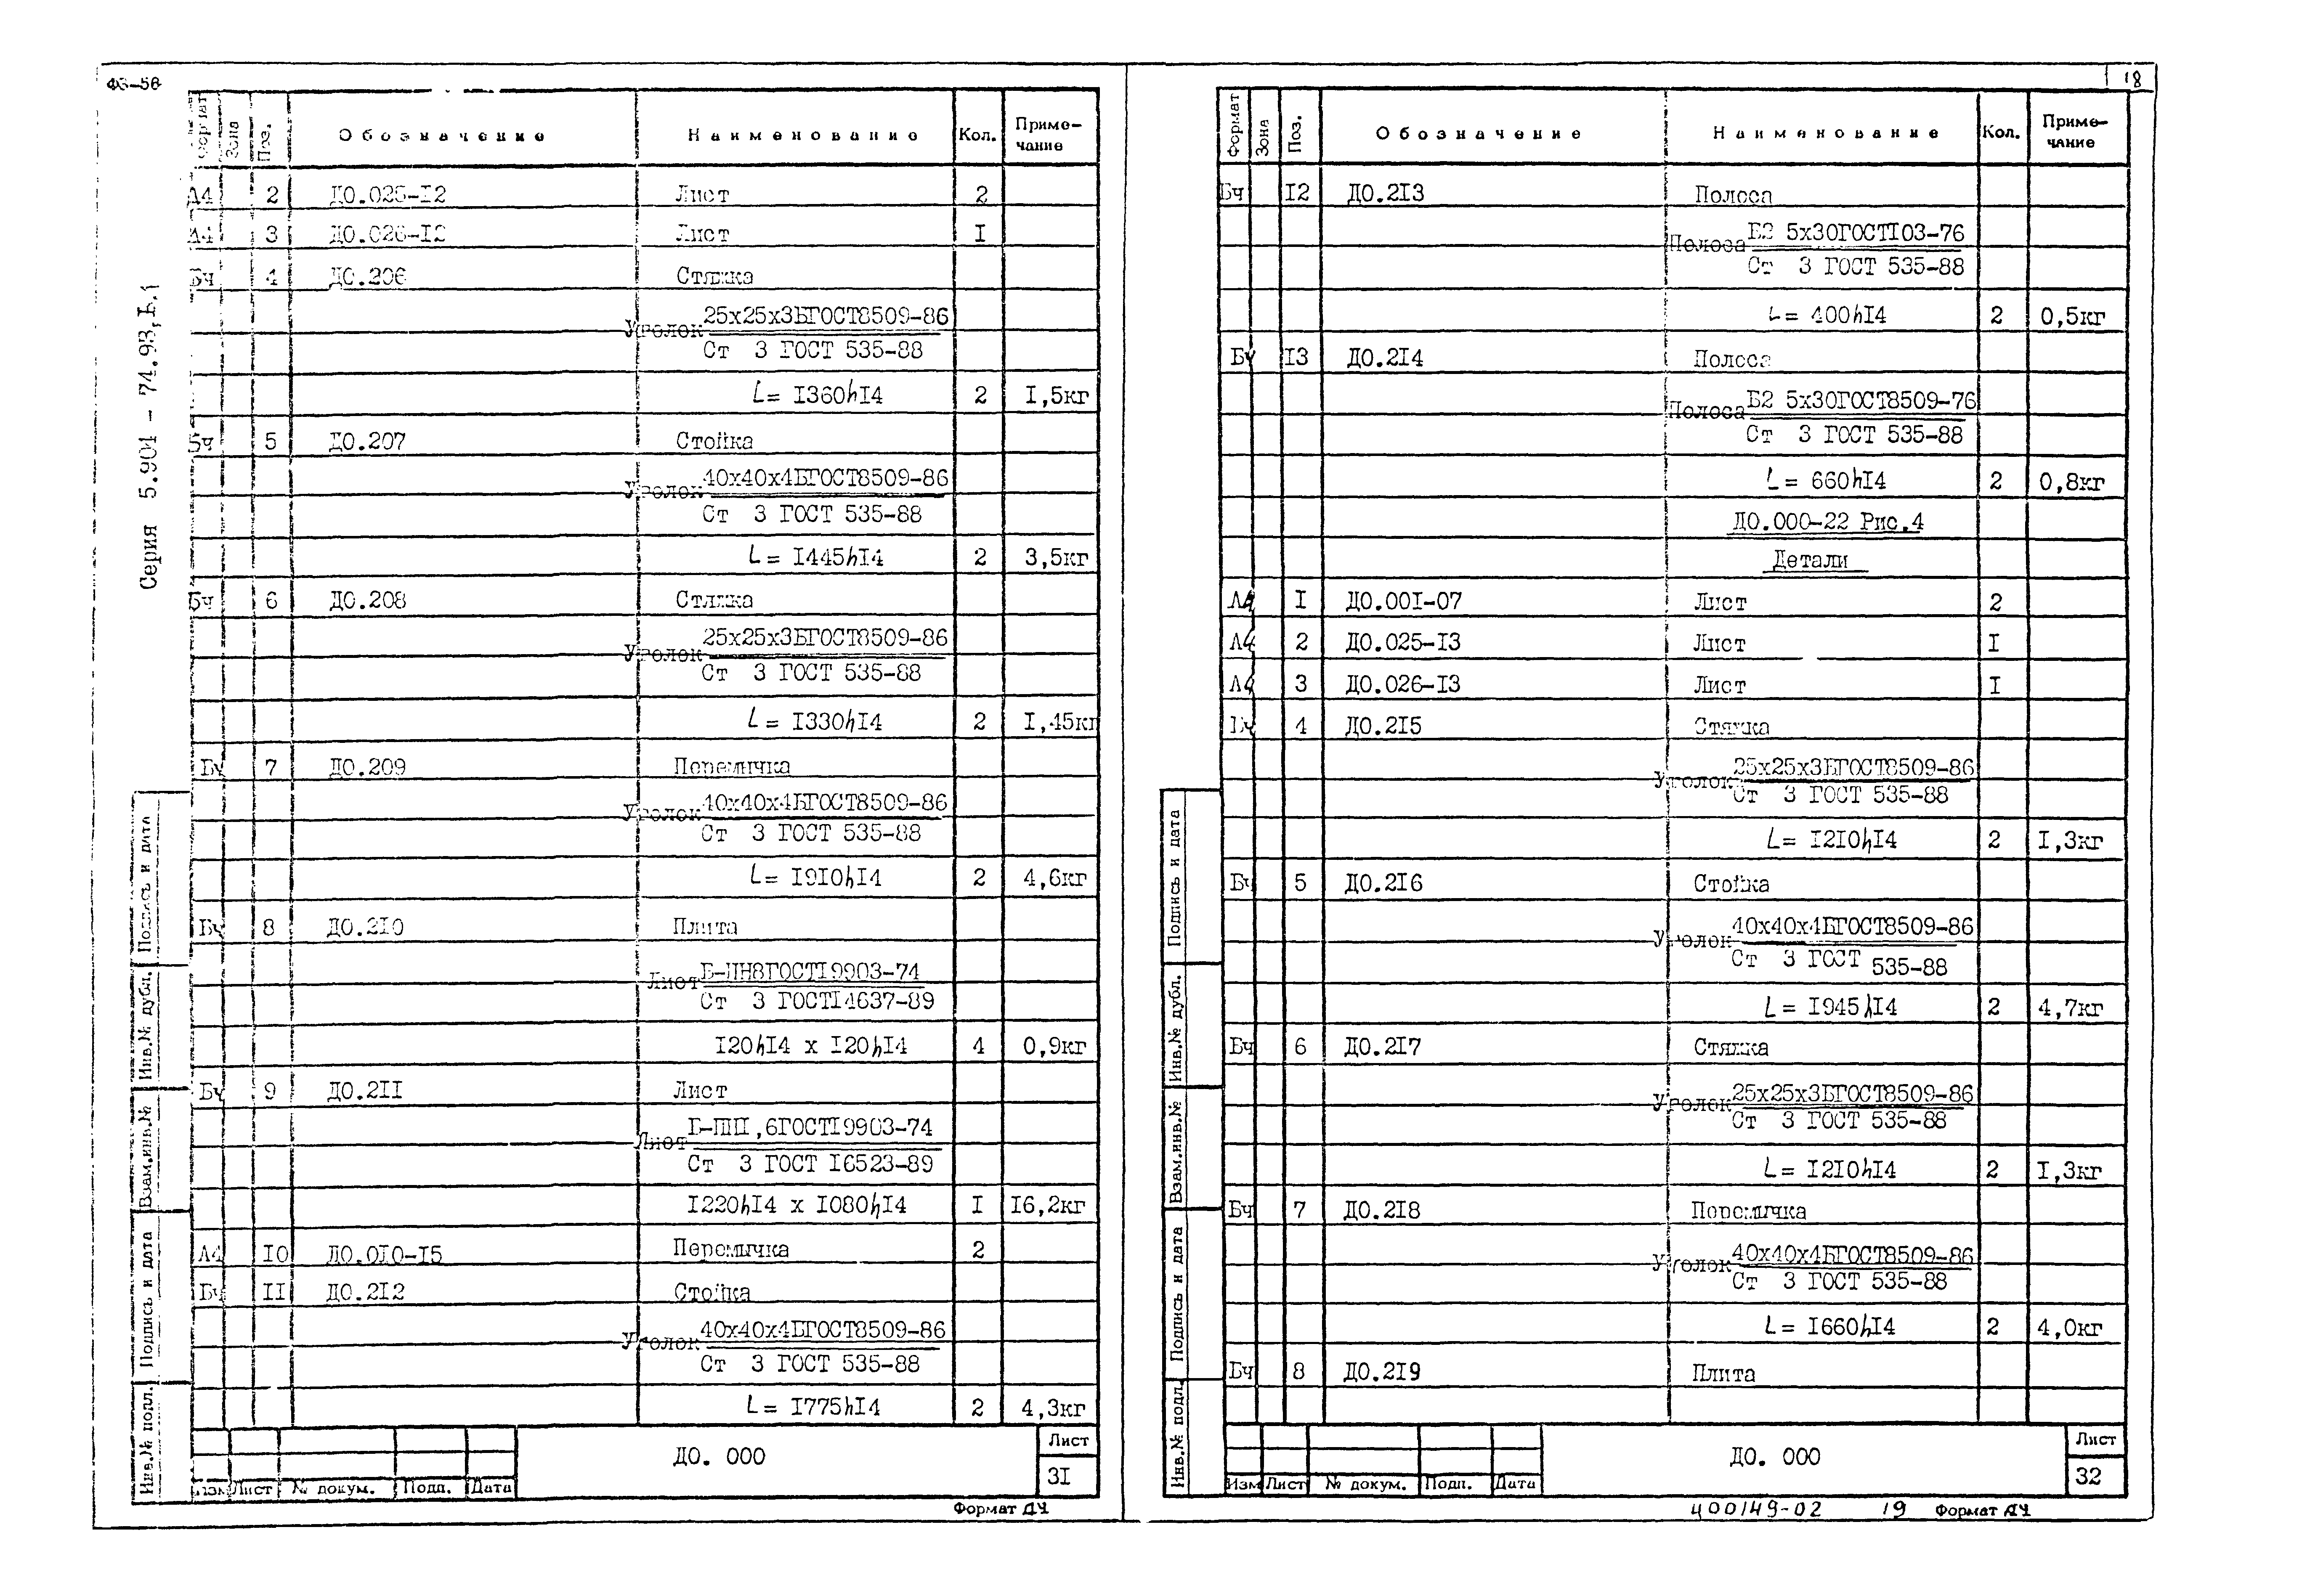 ФЗ-56
18
Серия 5.904 - 74.93, В.1
Формат Зона Поз. Обозначение Наименование Кол. Приме-
чание
А4 2 ДО.025-I2 Лист 2
А4 3 ДО.026-I2 Лист I
Бч 4 ДО.206 Стяжка
Уголок 25х25х3БГОСТ8509-86
Ст 3 ГОСТ 535-88
L= I360h14 2 I,5кг
Бч 5 ДО.207 Стойка
Уголок 40х40х4БГОСТ8509-86
Ст 3 ГОСТ 535-88
L= I445hI4 2 3,5кг
Бч 6 ДО.208 Стяжка
Уголок 25х25х3БГОСТ8509-86
Ст 3 ГОСТ 535-88
L= I330hI4 2 I,45кг
Бч 7 ДО.209 Перемычка
Уголок 40х40х4БГОСТ8509-86
Ст 3 ГОСТ 535-88
L= I9I0hI4 2 4,6кг
Бч 8 ДО.2I0 Плита
Лист Б-ПН8ГОСТI9903-74
Ст 3 ГОСТI4637-89
I20hI4 х I20hI4 4 0,9кг
Бч 9 ДО.2II Лист
Лист Б-ПНI,6ГОСТI9903-74
Ст 3 ГОСТ I6523-89
I220hI4 х I080hI4 I I6,2кг
А4 I0 ДО.0I0-I5 Перемычка 2
Бч II ДО.2I2 Стойка
Уголок 40х40х4БГОСТ8509-86
Ст 3 ГОСТ 535-88
L= I775hI4 2 4,3кг
Инв.№ подл. Подпись и дата Взам.инв.№ Инв.№ дубл. Подпись и дата
Изм Лист № докум. Подп. Дата
ДО. 000
Лист
3I
Формат А4
Формат Зона Поз. Обозначение Наименование Кол. Приме-
чание
Бч I2 ДО.2I3 Полоса
Полоса Б2 5х30ГОСТI03-76
Ст 3 ГОСТ 535-88
L= 400hI4 2 0,5кг
Бч I3 ДО.2I4 Полоса
Полоса Б2 5х30ГОСТ8509-76
Ст 3 ГОСТ 535-88
L= 660hI4 2 0,8кг
ДО.000-22 Рис.4
Детали
А4 I ДО.00I-07 Лист 2
А4 2 ДО.025-I3 Лист I
А4 3 ДО.026-I3 Лист I
Бч 4 ДО.2I5 Стяжка
Уголок 25х25х3БГОСТ8509-86
Ст 3 ГОСТ 535-88
L= I2I0hI4 2 I,3кг
Бч 5 ДО.2I6 Стойка
Уголок 40х40х4БГОСТ8509-86
Ст 3 ГОСТ 535-88
L= I945hI4 2 4,7кг
Бч 6 ДО.2I7 Стяжка
Уголок 25х25х3БГОСТ8509-86
Ст 3 ГОСТ 535-88
L= I2I0hI4 2 I,3кг
Бч 7 ДО.2I8 Перемычка
Уголок 40х40х4БГОСТ8509-86
Ст 3 ГОСТ 535-88
L= I660hI4 2 4,0кг
Бч 8 ДО.2I9 Плита
Инв.№ подл. Подпись и дата Взам.инв.№ Инв.№ дубл. Подпись и дата
Изм Лист № докум. Подп. Дата
ДО. 000
Лист
32
400149-02 19 Формат А4